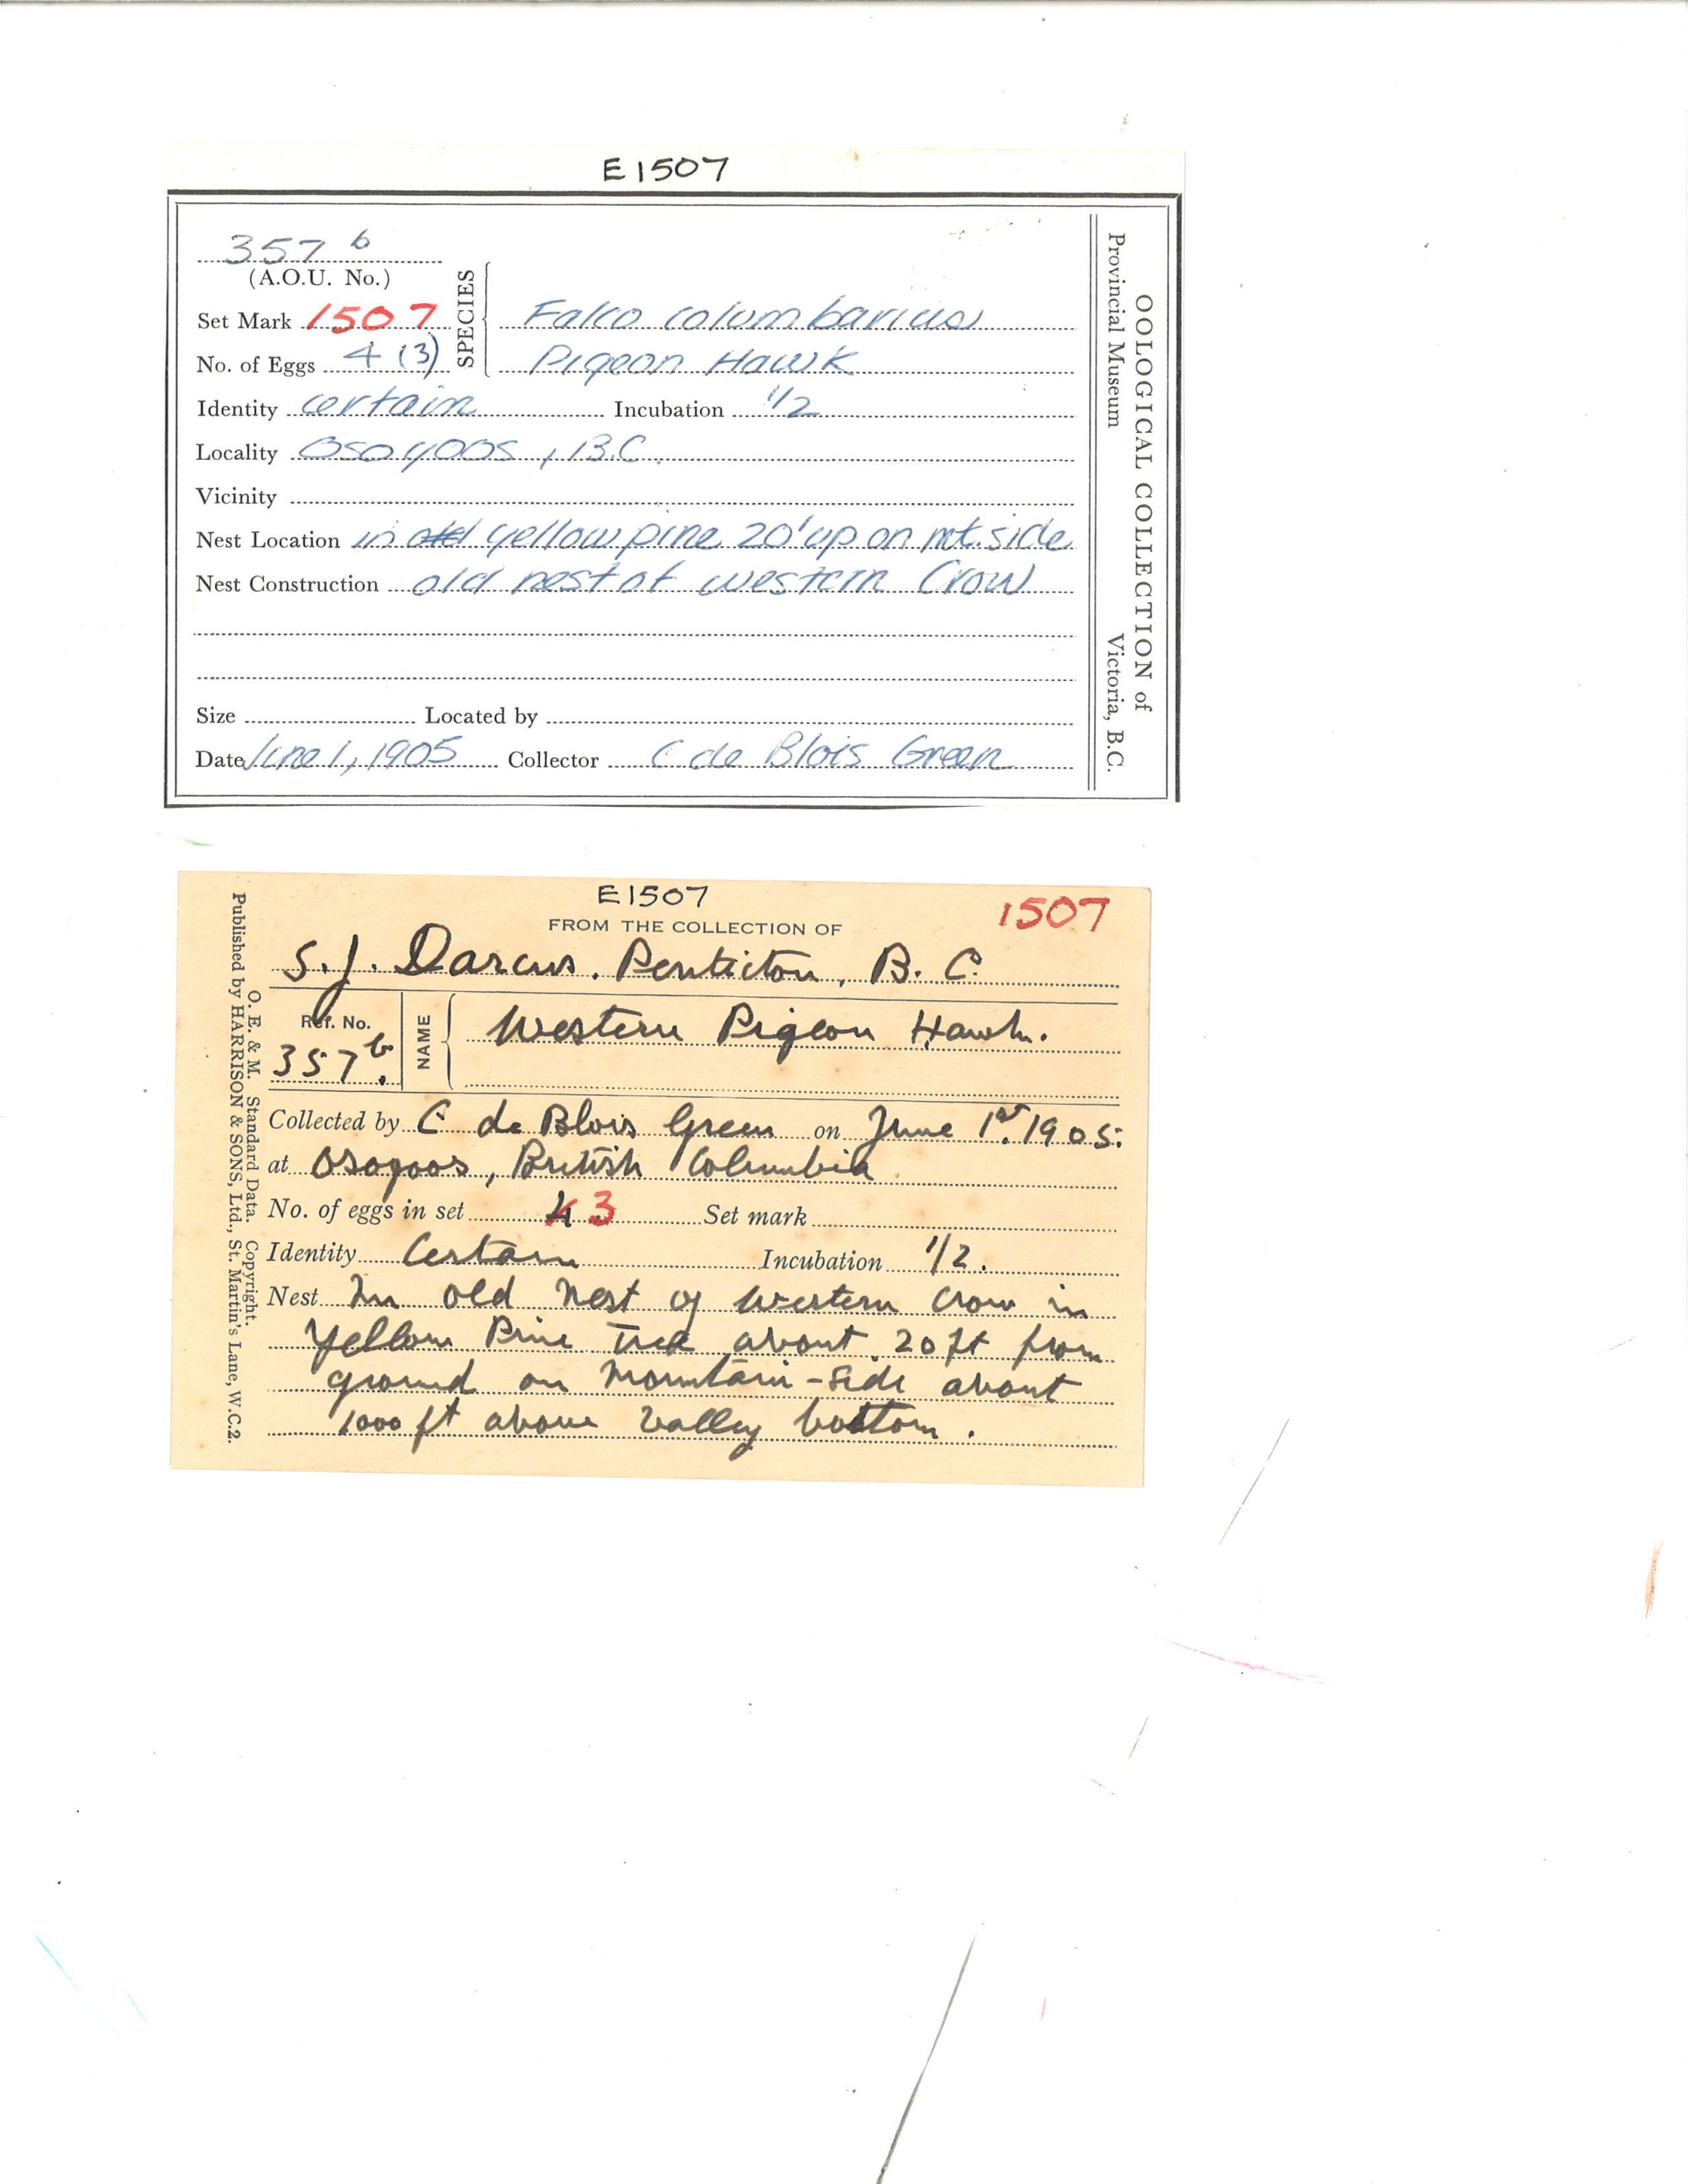 E1507
357 b
(A.O.U. No.)
Set Mark 1507
No. of Eggs 4 (3)
SPECIES
Falco columbarius
Pigeon Hawk
Identity certain Incubation 1/2
Locality Osoyoos, B.C.
Vicinity
Nest Location in old yellow pine 20' up on mt. side
Nest Construction old nest of western Crow
Size Located by
Date June 1, 1905 Collector C de Blois Green
OOLOGICAL COLLECTION of
Provincial Museum Victoria, B.C.
E1507
1507
FROM THE COLLECTION OF
S. J. Darcus. Penticton, B. C.
Ref. No.
357b.
NAME
Western Pigeon Hawk.
Collected by C de Blois Green on June 1st. 1905.
at Osoyoos, British Columbia
No. of eggs in set 4 3 Set mark
Identity Certain Incubation 1/2.
Nest In old nest of Western Crow in
Yellow Pine Tree about 20 ft from
ground on Mountain-side about
1000 ft above valley bottom.
O. E. & M. Standard Data. Copyright.
Published by HARRISON & SONS, Ltd., St. Martin's Lane, W.C.2.